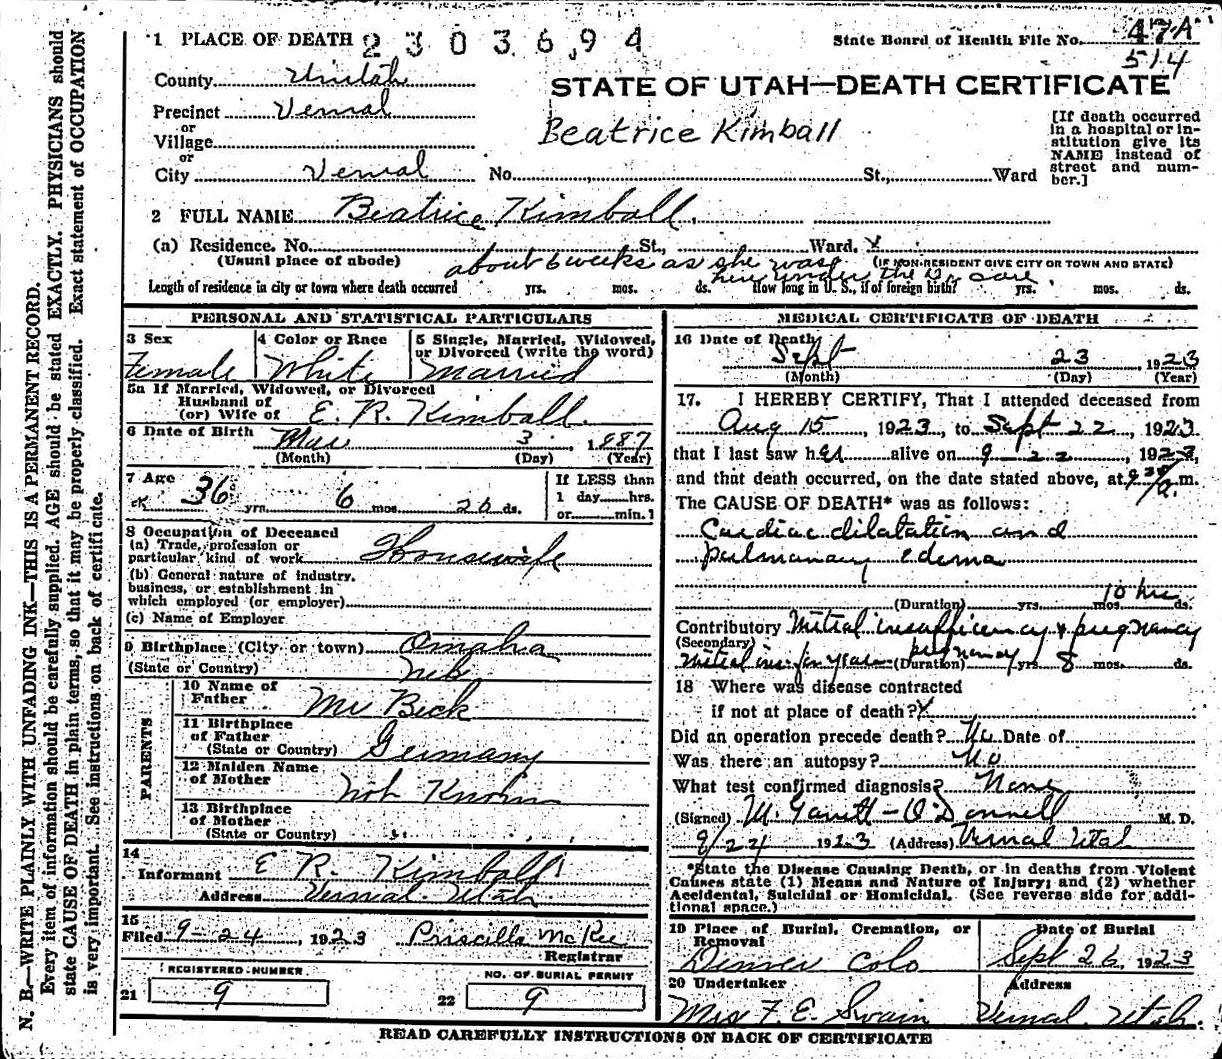 N. B.—WRITE PLAINLY WITH UNFADING INK—THIS IS A PERMANENT RECORD.
Every item of information should be carefully supplied. AGE should be stated EXACTLY. PHYSICIANS should
state CAUSE OF DEATH in plain terms, so that it may be properly classified. Exact statement of OCCUPATION
is very important. See instructions on back of certificate.
1 PLACE OF DEATH 2303694
State Board of Health File No. 47A
514
County Uintah
STATE OF UTAH—DEATH CERTIFICATE
Precinct Vernal
or
Village
or
City Vernal No. St., Ward
Beatrice Kimball
[If death occurred
in a hospital or in-
stitution give its
NAME instead of
street and num-
ber.]
2 FULL NAME Beatrice Kimball.
(a) Residence. No. St., Ward. x
(Usual place of abode) about 6 weeks as she was (IF NON-RESIDENT GIVE CITY OR TOWN AND STATE)
here under the Dr. care.
Length of residence in city or town where death occurred yrs. mos. ds. How long in U. S., if of foreign birth? yrs. mos. ds.
PERSONAL AND STATISTICAL PARTICULARS
3 Sex 4 Color or Race 5 Single, Married, Widowed,
or Divorced (write the word)
Female White Married
5a If Married, Widowed, or Divorced
Husband of
(or) Wife of E. R. Kimball.
6 Date of Birth Mar 3. 1887
(Month) (Day) (Year)
7 Age 36 yrs. 6 mos. 20 ds.
If LESS than
1 day hrs.
or min.?
8 Occupation of Deceased
(a) Trade, profession or
particular kind of work Housewife
(b) General nature of industry,
business, or establishment in
which employed (or employer)
(c) Name of Employer
9 Birthplace (City or town) Omaha
(State or Country) Neb
PARENTS
10 Name of
Father Mr Beck
11 Birthplace
of Father
(State or Country) Germany
12 Maiden Name
of Mother Not Known
13 Birthplace
of Mother
(State or Country)
14
Informant E R. Kimball
Address Vernal Utah
15
Filed 9-24, 1923 Priscilla McKee
Registrar
REGISTERED NUMBER
21 9
NO. OF BURIAL PERMIT
22 9
MEDICAL CERTIFICATE OF DEATH
16 Date of Death
Sept 23, 1923
(Month) (Day) (Year)
17. I HEREBY CERTIFY, That I attended deceased from
Aug 15, 1923, to Sept 22, 1923
that I last saw her alive on 9-22, 1923,
and that death occurred, on the date stated above, at 9 30 a.m.
The CAUSE OF DEATH* was as follows:
Cardiac dilatation and
pulmonary edema
10 hrs
(Duration) yrs. mos. ds.
Contributory Mitral insufficiency & pregnancy
(Secondary)
pregnancy
Mitral ins. for years (Duration) yrs. 8 mos. ds.
18 Where was disease contracted
if not at place of death? X
Did an operation precede death? No Date of
Was there an autopsy? No
What test confirmed diagnosis? None
(Signed) M. Garrett-O'Donnell M. D.
9/24 1923 (Address) Vernal Utah
*State the Disease Causing Death, or in deaths from Violent
Causes state (1) Means and Nature of Injury; and (2) whether
Accidental, Suicidal or Homicidal. (See reverse side for addi-
tional space.)
19 Place of Burial, Cremation, or
Removal
Date of Burial
Denver Colo Sept 26, 1923
20 Undertaker Address
Mrs F. E. Swain Vernal Utah.
READ CAREFULLY INSTRUCTIONS ON BACK OF CERTIFICATE